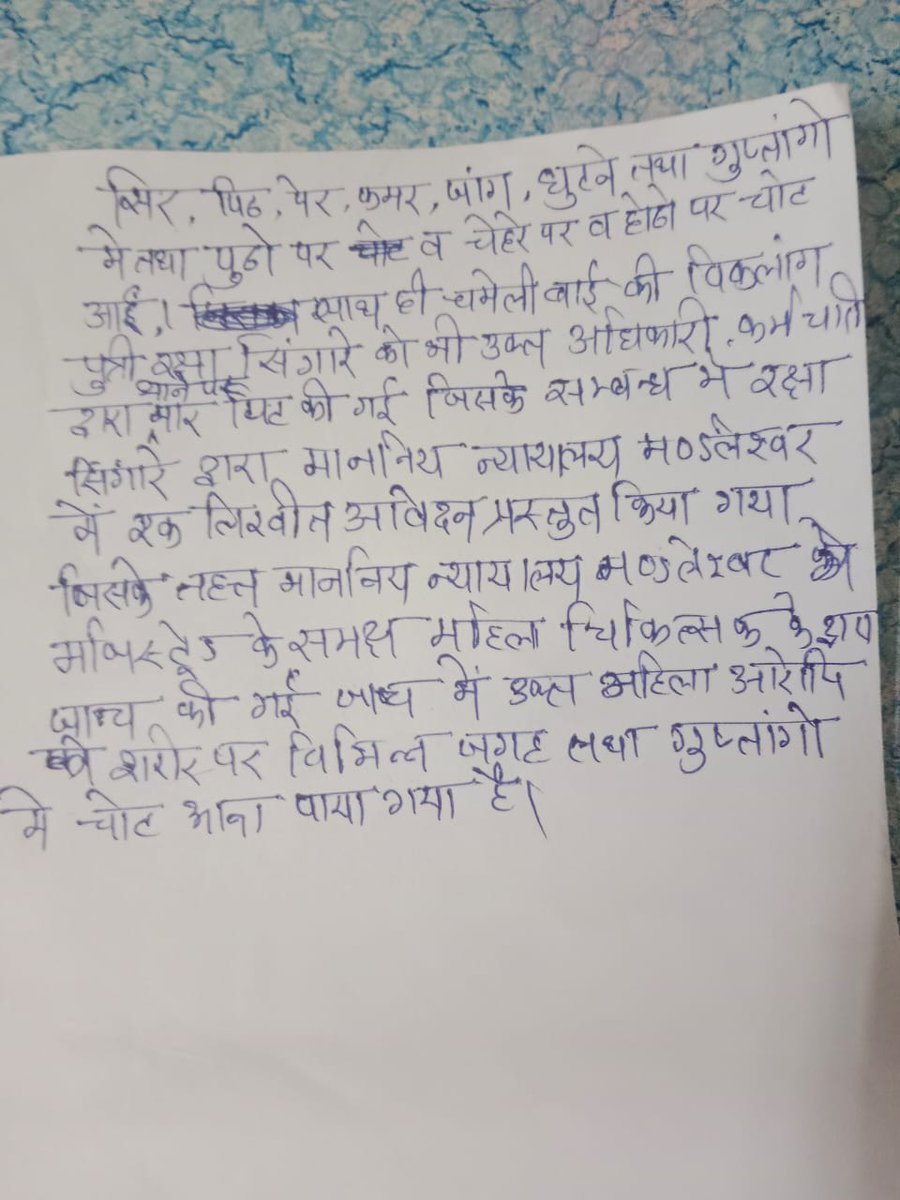 सिर, पिठ, पेर, कमर, जांग, घुटने तथा गुप्तांगो
मे तथा पुठो पर व चेहरे पर व होठो पर चोट
आई,। साथ ही चमेली बाई की विकलांग
पुत्री रक्षा सिंगारे को भी उक्त अधिकारी, कर्मचारी
थाने पर
द्वारा मार पिट की गई जिसके सम्बन्ध मे रक्षा
सिंगारे द्वारा माननिय न्यायालय मण्डलेश्वर
में एक लिखीत आवेदन प्रस्तुत किया गया
जिसके तहत माननिय न्यायालय मण्डलेश्वर
मजिस्ट्रेड के समक्ष महिला चिकित्सक के द्वारा
जान्च की गई जाच में उक्त महिला आरोपि
के शरीर पर विभिन्न जगह तथा गुप्तांगो
मे चोट आना पाया गया है।